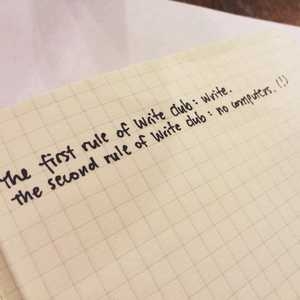 The first rule of Write Club: Write.
The second rule of Write Club: no computers. (!)